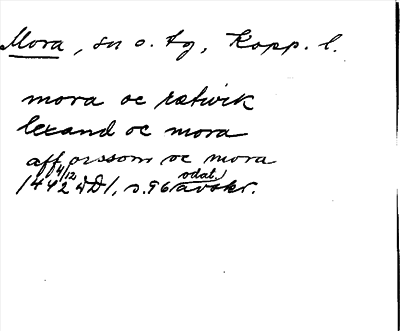 Mora, sn o. tg, Kopp. l.
mora oc rætwik
lexand oc mora
aff orssom oc mora
1442 4/12 DD1, s. 96 odat. avskr.